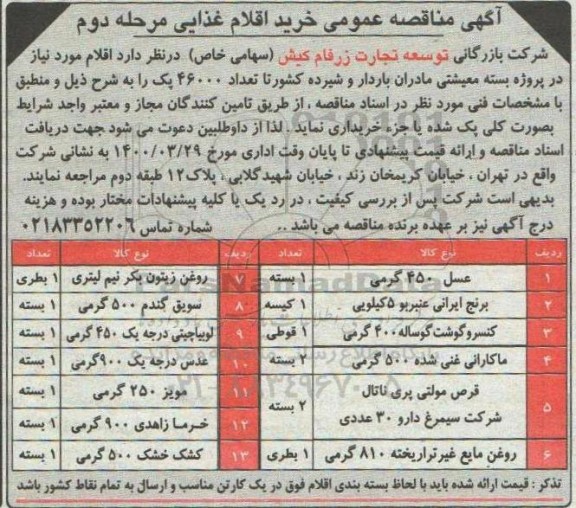 آگهی مناقصه عمومی خرید اقلام غذایی مرحله دوم
شرکت بازرگانی توسعه تجارت زرفام کیش (سهامی خاص) درنظر دارد اقلام مورد نیاز
در پروژه بسته معیشتی مادران باردار و شیرده کشورتا تعداد ۴۶۰۰۰ پک را به شرح ذیل و منطبق
با مشخصات فنی مورد نظر در اسناد مناقصه ، از طریق تامین کنندگان مجاز و معتبر واجد شرایط
بصورت کلی پک شده یا جزء خریداری نماید . لذا از داوطلبین دعوت می شود جهت دریافت
اسناد مناقصه و ارائه قیمت پیشنهادی تا پایان وقت اداری مورخ ۱۴۰۰/۰۳/۲۹ به نشانی شرکت
واقع در تهران ، خیابان کریمخان زند ، خیابان شهیدگلابی ، پلاک۱۲ طبقه دوم مراجعه نمایند.
بدیهی است شرکت پس از بررسی کیفیت ، در رد یک یا کلیه پیشنهادات مختار بوده و هزینه
درج آگهی نیز بر عهده برنده مناقصه می باشد .. شماره تماس ۰۲۱۸۳۳۵۲۲۰۶
ردیف نوع کالا تعداد ردیف نوع کالا تعداد
۱ عسل ۴۵۰ گرمی ۱ بسته ۷ روغن زیتون بکر نیم لیتری ۱ بطری
۲ برنج ایرانی عنبربو ۵کیلویی ۱ کیسه ۸ سویق گندم ۵۰۰ گرمی ۱ بسته
۳ کنسروگوشت‌گوساله۴۰۰ گرمی ۱ قوطی ۹ لوبیاچیتی درجه یک ۴۵۰ گرمی ۱ بسته
۴ ماکارانی غنی شده ۵۰۰ گرمی ۲ بسته ۱۰ عدس درجه یک ۹۰۰گرمی ۱ بسته
۵ قرص مولتی پری ناتال ۲ بسته ۱۱ مویز ۲۵۰ گرمی ۱ بسته
شرکت سیمرغ دارو ۳۰ عددی ۱۲ خرما زاهدی ۹۰۰ گرمی ۱ بسته
۶ روغن مایع غیرتراریخته ۸۱۰ گرمی ۱ بطری ۱۳ کشک خشک ۵۰۰ گرمی ۱ بسته
تذکر : قیمت ارائه شده باید با لحاظ بسته بندی اقلام فوق در یک کارتن مناسب و ارسال به تمام نقاط کشور باشد